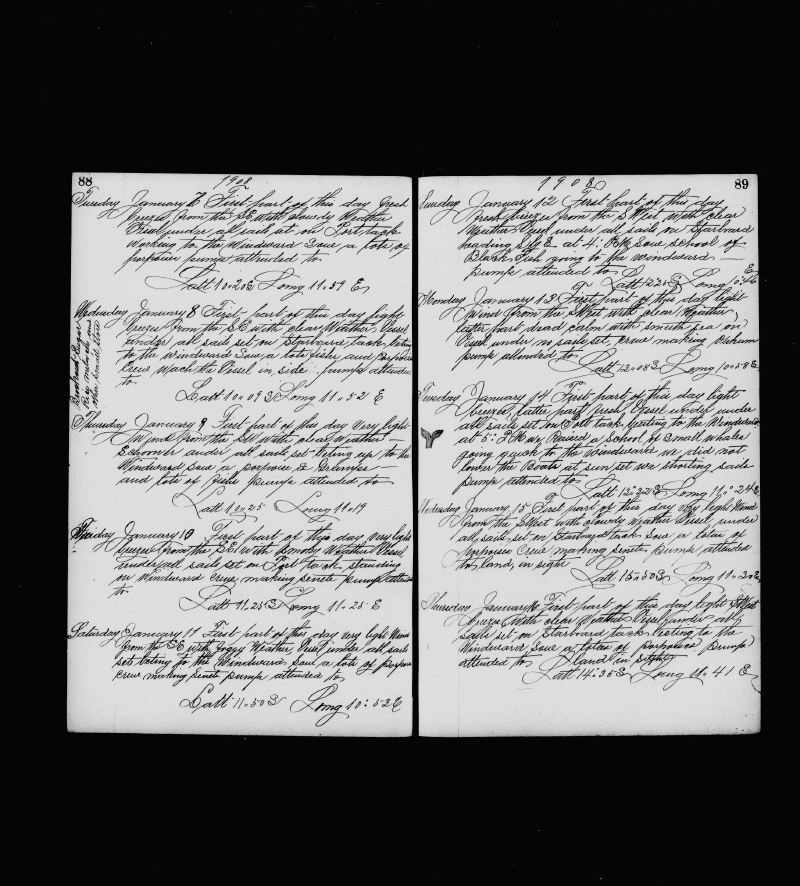 88
1908
Tuesday January 7 First part of this day fresh
breezes from the SE with cloudy Weather
Vesel under all sails set on Port tack
Working to the Windward Sow a lote of
porpoise pump attended to
Latt 10=20S Long 11=59 E
Wedesday January 8 First part of this day light
breeze from the SE with clear Weather Vessel
under all sails set on Starboard tack,
to the windward Sow a lote fishe and Porpoise
Crew wach the Vesel in side pump attended
to
Latt 10=09S Long 11=52 E
Thursday January 9 First part of this day very light
Wind from the SE With clear Weather
under all sails set beting up to the
Windward Sow a porpoise &
and lote of fishe pump attended to
Latt 10=25 Long 11=19
Friday January 10 First part of this day very light
breeze from the SE with Smoky Weather Vessel
under all sails set on Port tack standing
on Windward Crew making Senete pump attended
to
Latt 11=25S Long 11=25 E
Saturday January 11 First part of this day very light Wind
from the SE with foggy Weather Vesel under all sails
set beting to the Windward Saw a lote of porpoise
crew making Senete pump attended to
Latt 11=50S Long 10=52E
89
1908
Sunday January 12 First part of this day
fresh breeze from the SWest with clear
Weather Vesel under all sails on Starboard
heading at 4: PM Sow School of
Black Fish going to the windward
pump attended to
Latt 12=20S Long
Monday January 13 First part of this day light
Wind from the SWest with clear Weather
later part dead calm with smooth sea on
Vesel under no sails set, Crew making
pump attended to
Latt 13=08S Long 10=58E
Tuesday January 14 First part of this day light
breezes, latter part fresh Vesel under under
all sails set on Port tack beating to the Windward
at 5: PM we Raised a School of Small whales
going quick to the Windward we did not
lower the Boats at sun set we shorting sails
pump attended to
Latt 13=32S Long 11=24E
Wedesday January 15 First part of this day very light Wind
from the SWest with cloudy Weather Vesel under
all sails set on Starboard tack Sow a lotes of
porpoises Crew making Senete pump attended
to, land, in sight
Latt 15=50S Long 11=30E
Thursday January 16 First part of this day light SWest
breeze With clear Weather Vesel under all
sails set on Starboard tack beeting to the
Windward Sow a lotes of porpoise pump
attended to land in sight
Latt 14=35S Long 11=41 E